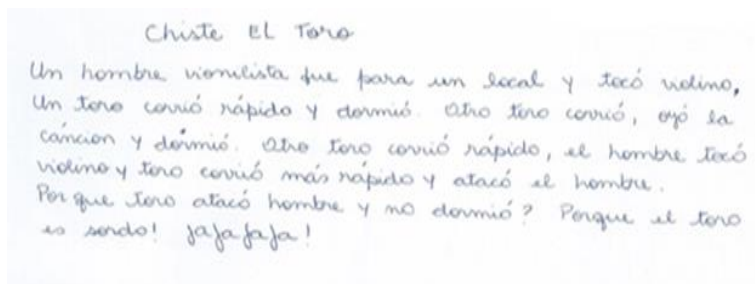 Chiste EL Toro
Un hombre viomilista fue para un local y tocó violino,
Un toro corrió rápido y dormió. Otro toro corrió, oyó la
cáncion y dórmió. Otro toro corrió rápido, el hombre tocó
violino y toro corrió más rápido y atacó el hombre.
Por que toro atacó hombre y no dormió? Porque el toro
es sordo! jajajaja!